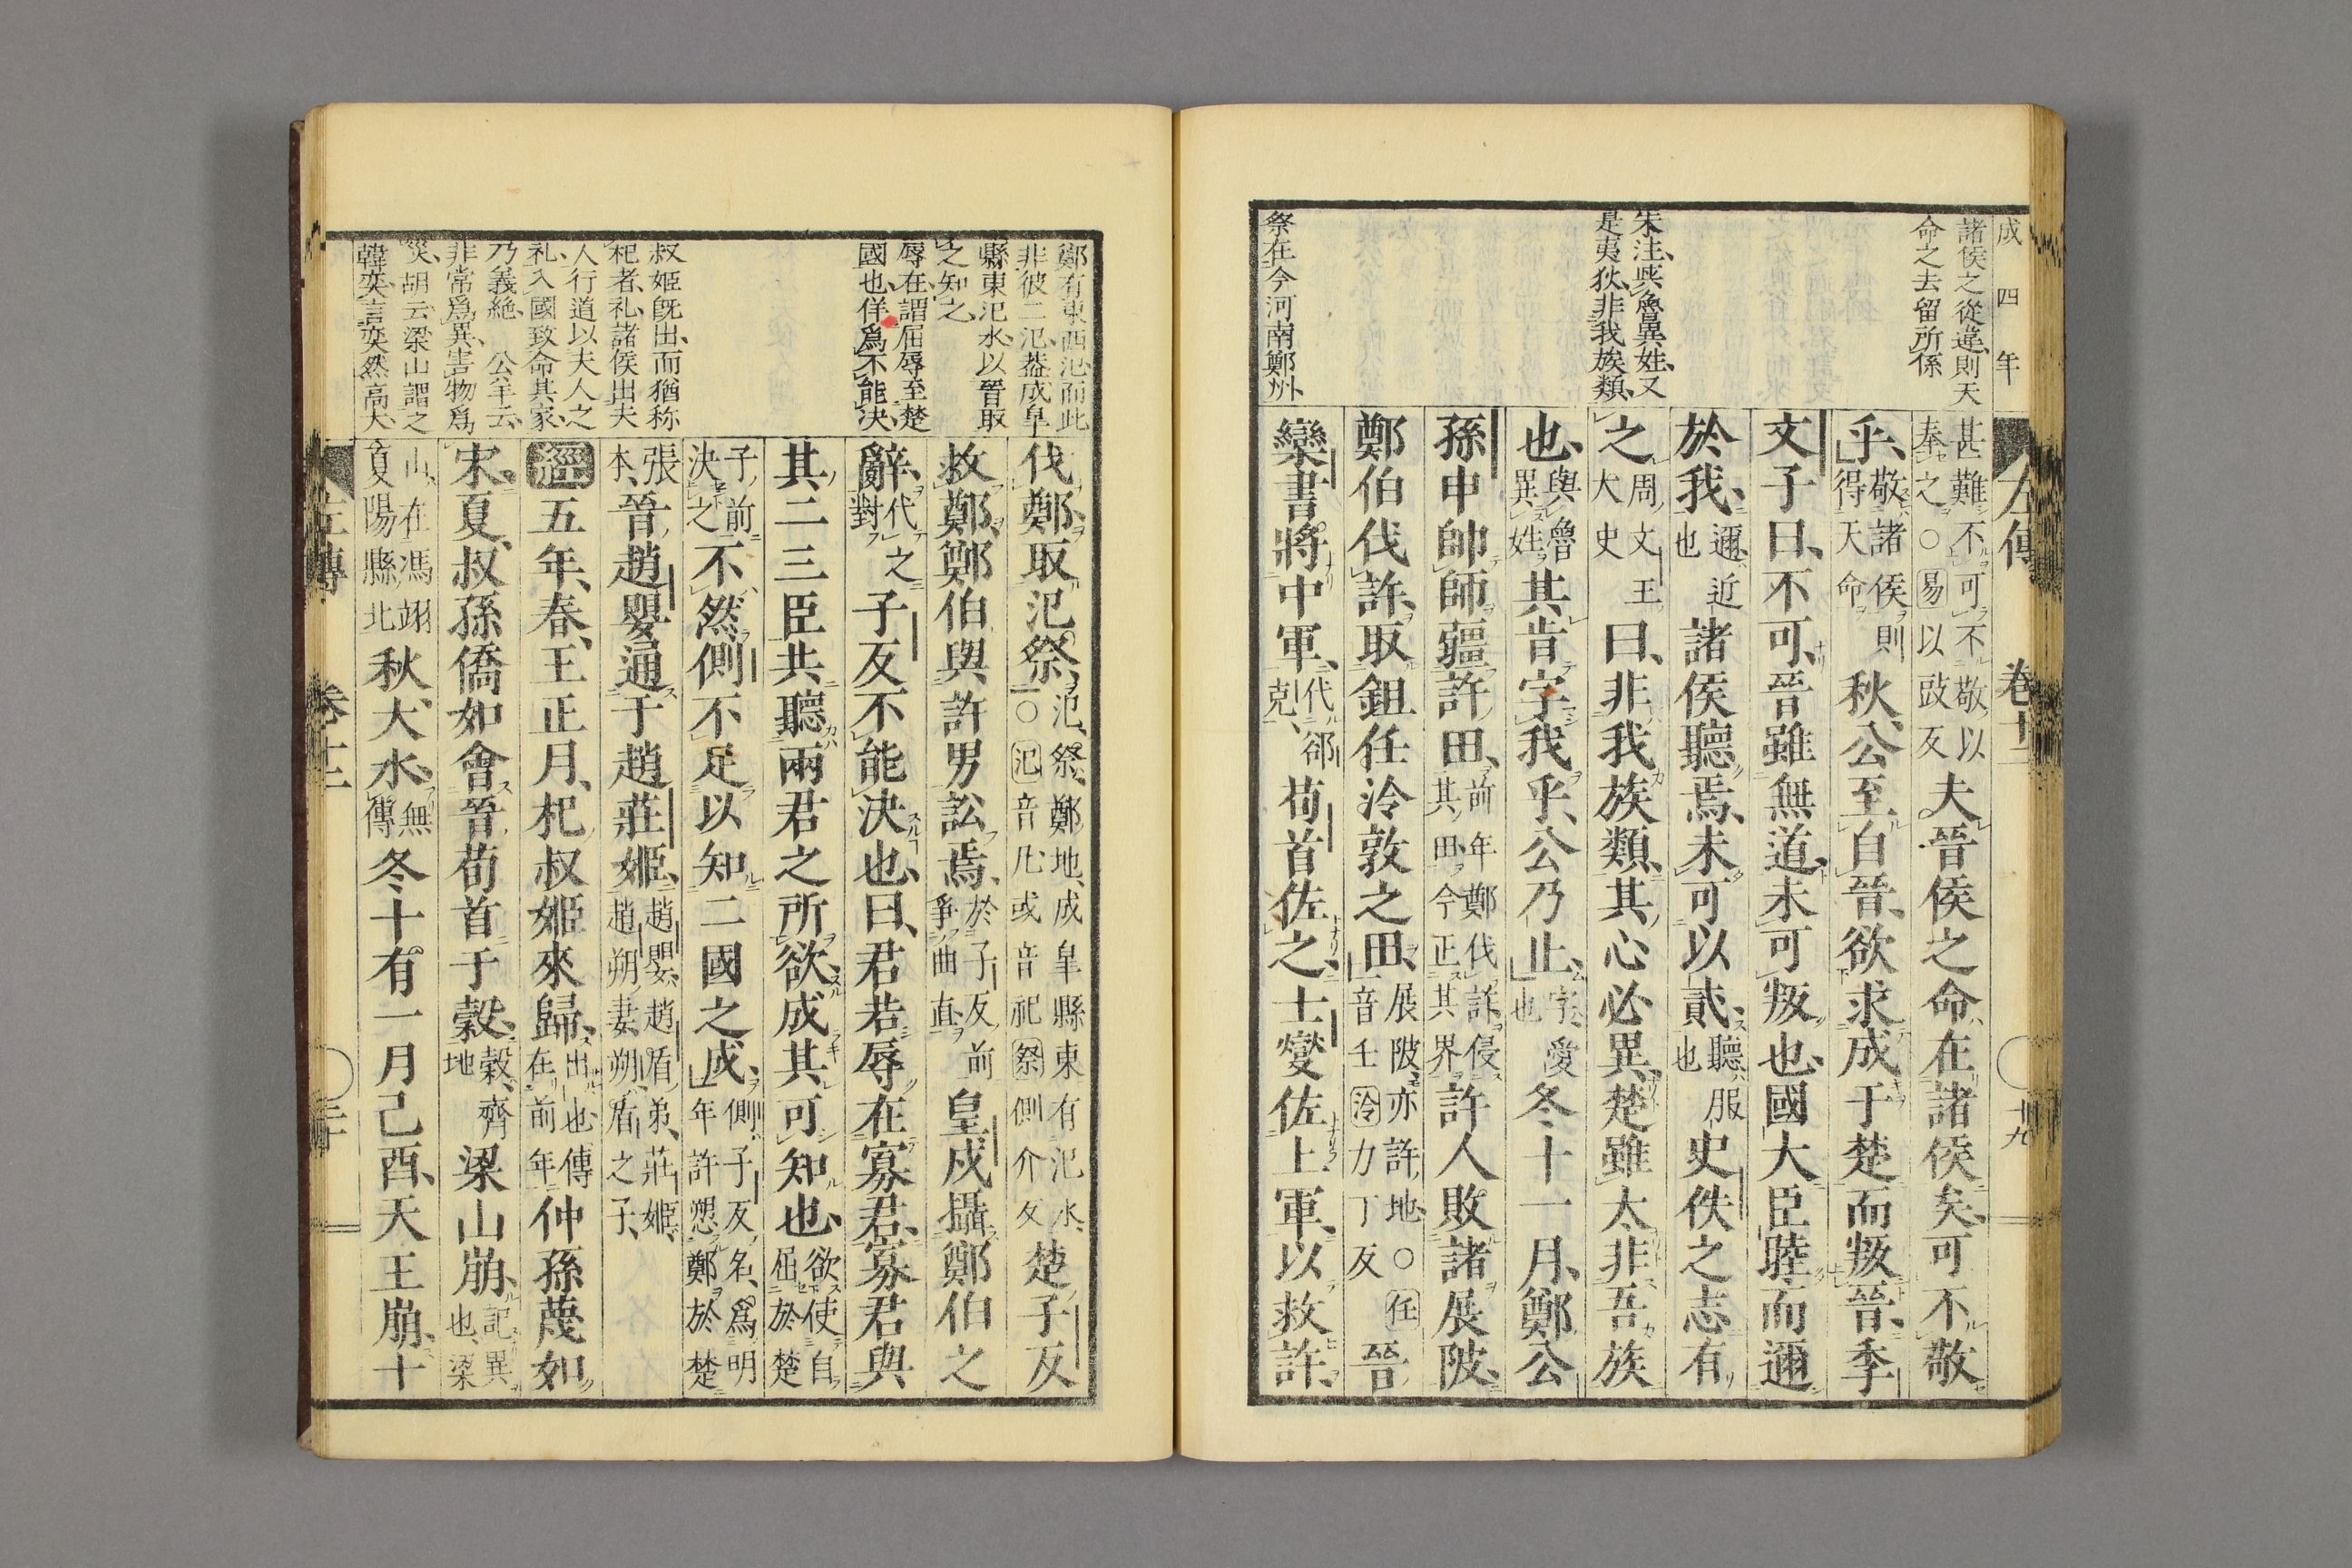 成四年
諸侯之從違則天
命之去留所係
朱注些魯異姓又
是夷狄非我族類
祭在今河南鄭州
左傳 卷十二 十九
甚難不可不敬以
奉之○易以豉反
夫晉侯之命在諸侯矣可不敬
乎敬諸侯則得天命秋公至自晉欲求成于楚而叛晉季
文子曰不可晉雖無道未可叛也國大臣睦而邇
於我邇近也諸侯聽焉未可以貳聽服也史佚之志有
之周文王大史曰非我族類其心必異楚雖大非吾族
也與魯異姓其肯字我乎公乃止字愛也冬十一月鄭公
孫申帥師疆許田前年鄭伐許侵其田今正其界許人敗諸展陂
鄭伯伐許取鉏任泠敦之田展陂亦許地○任音壬泠力丁反晉
欒書將中軍代郤克荀首佐之士燮佐上軍以救許
鄭有東西氾而此
非彼二氾蓋成皐
縣東氾水以晉取
之知之
辱在謂屈辱至楚
國也佯爲不能決
叔姬既出而猶称
杞者礼諸侯出夫
人行道以夫人之
礼入國致命其家
乃義絶 公羊云
非常爲異害物爲
災胡云梁山謂之
韓奕言奕然高大
伐鄭取氾祭氾祭鄭地成皐縣東有氾水○氾音凡或音祀祭側介反楚子反
救鄭鄭伯與許男訟焉於子反前爭曲直皇戌攝鄭伯之
辭代之對子反不能決也曰君若辱在寡君寡君與
其二三臣共聽兩君之所欲成其可知也欲使自屈於楚
子前決之不然側不足以知二國之成側子反名爲明年許愬鄭於楚
張本晉趙嬰通于趙莊姬趙嬰趙盾弟莊姬趙朔妻朔盾之子
經五年春王正月杞叔姬來歸出也傳在前年仲孫蔑如
宋夏叔孫僑如會晉荀首于穀穀齊地梁山崩記異也梁
山在馮翊夏陽縣北秋大水無傳冬十有一月己酉天王崩十
左傳 卷十二 二十